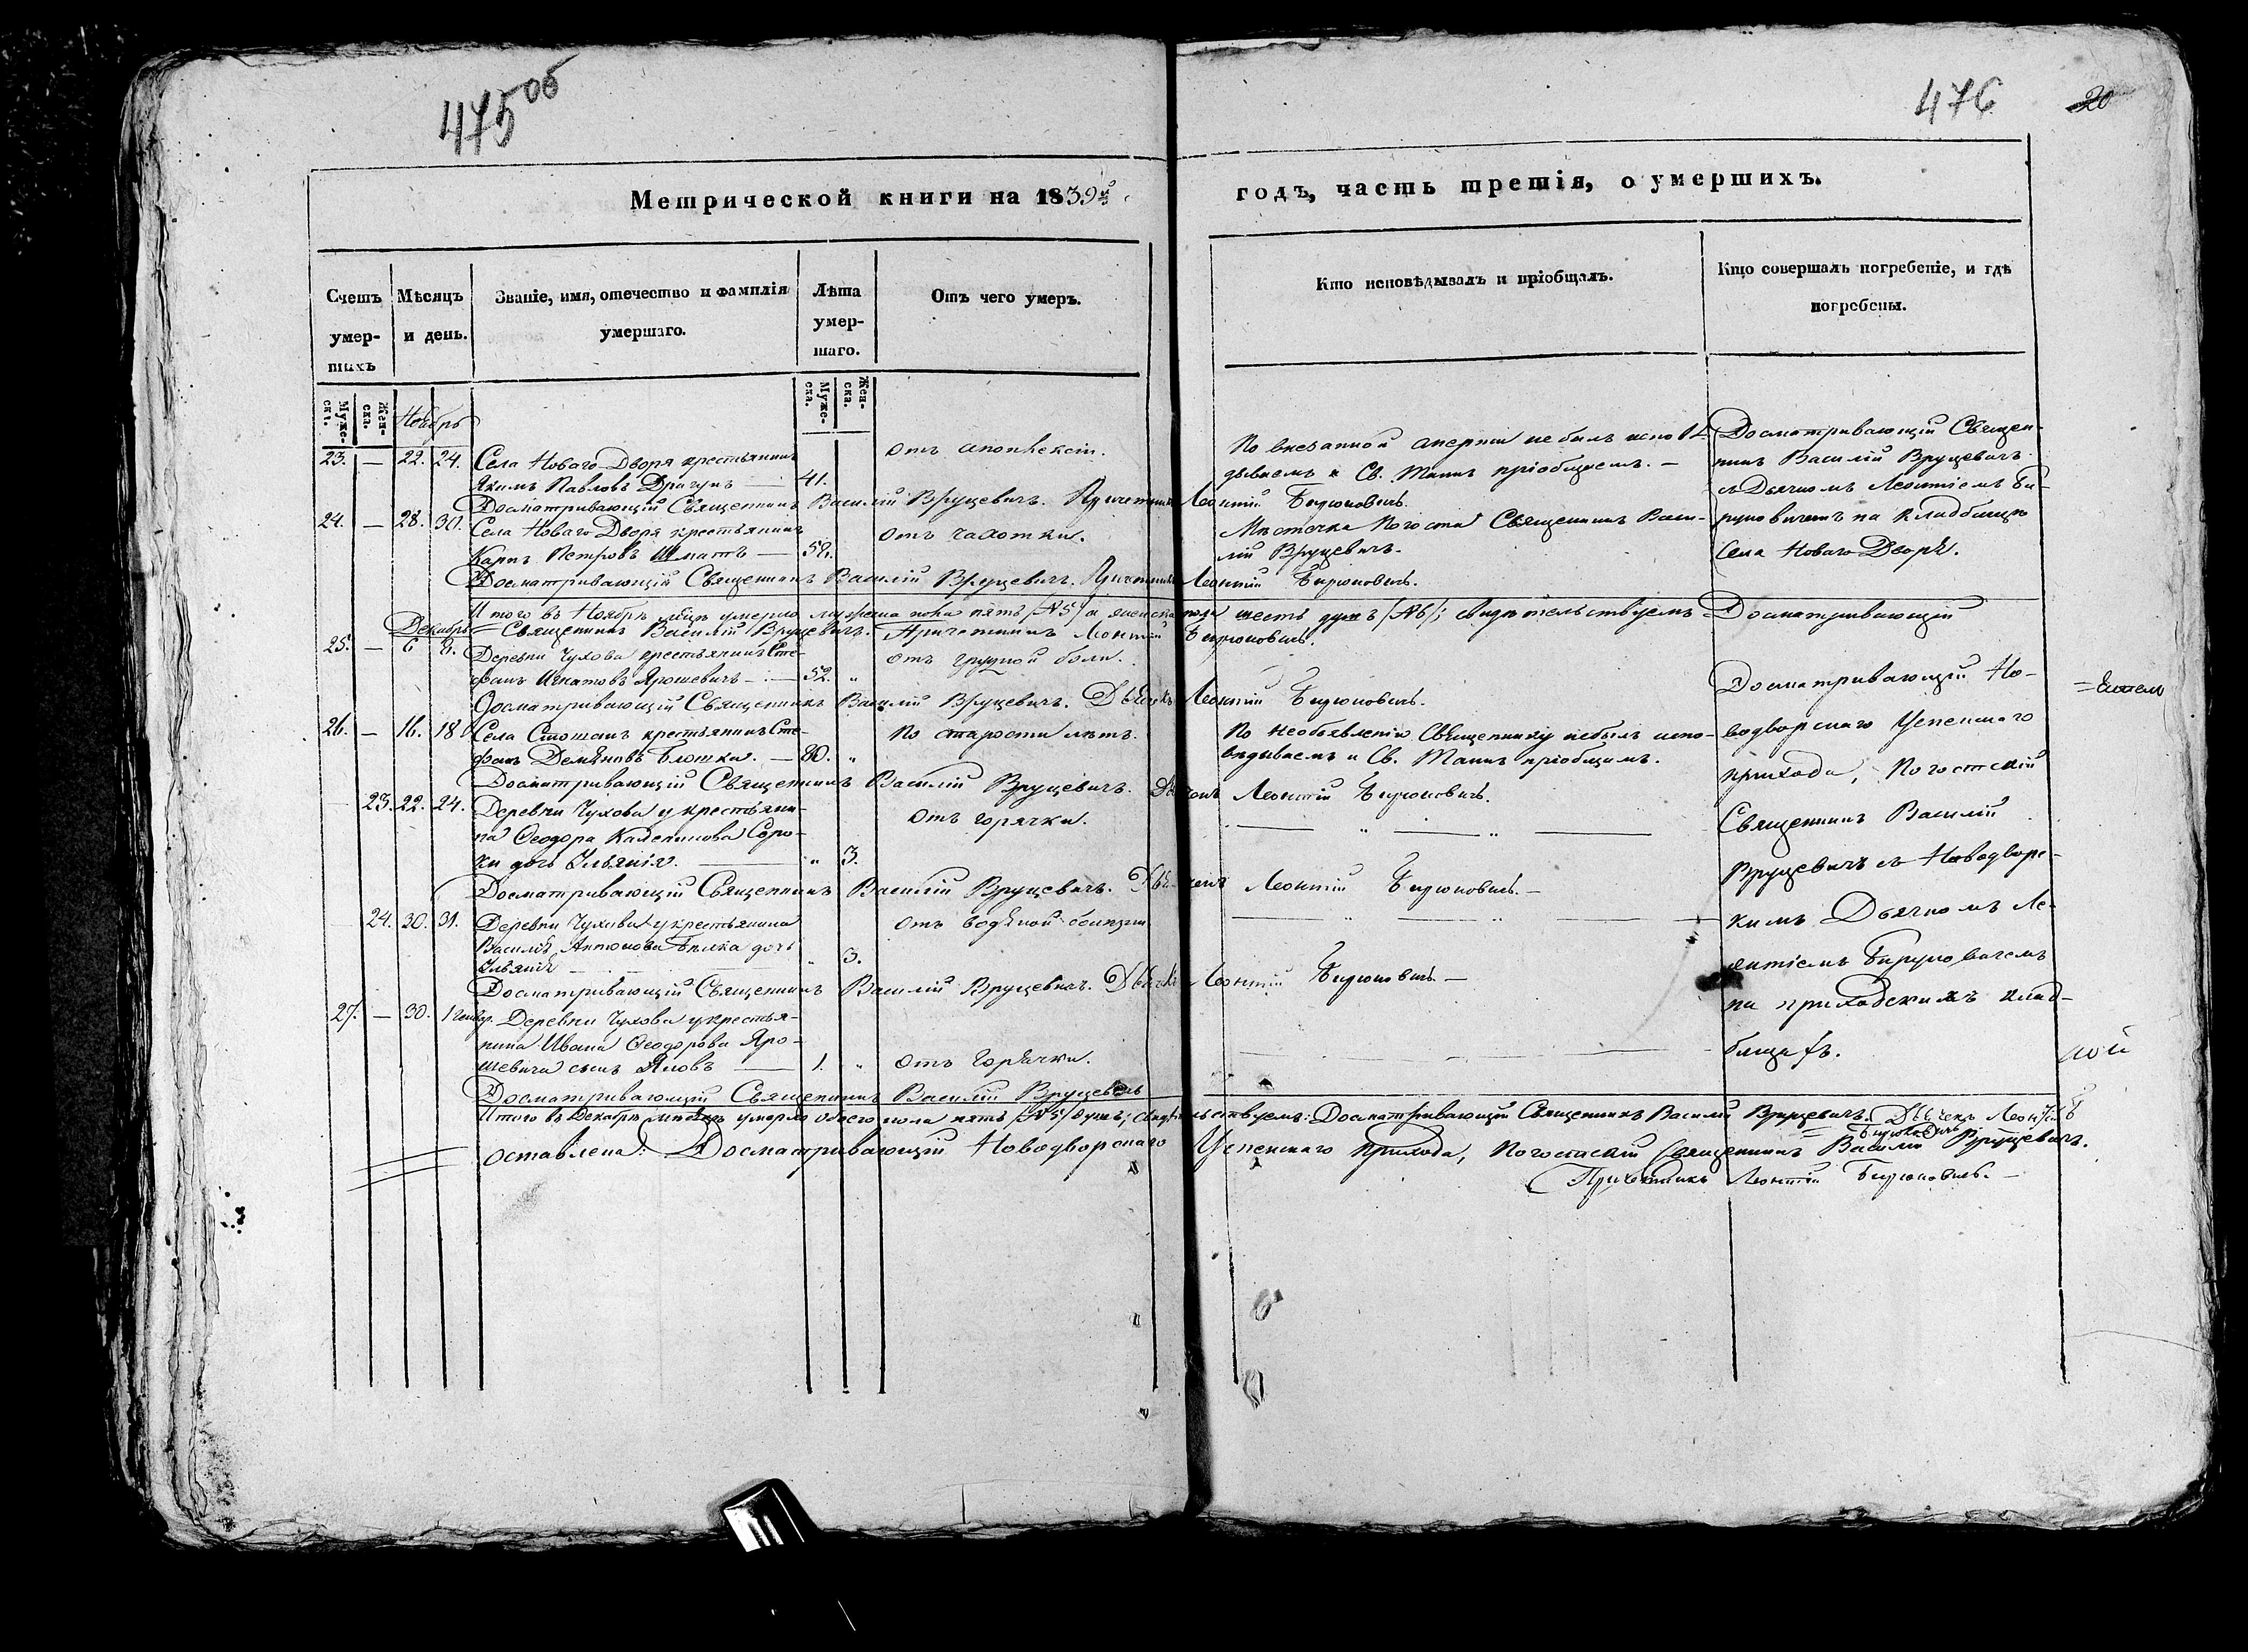 475об
476
20
Метрической книги на 1839й
годъ, часть третія, о умершихъ.
Счетъ умер-шихъ
Мѣсяцъ и день.
Званіе, имя, отечество и фамилія умершаго.
Лѣта умер-шаго.
Отъ чего умеръ.
Кто исповѣдывалъ и пріобщалъ.
Кто совершалъ погребеніе, и гдѣ погребены.
Муже-ска.
Жен-ска.
Муже-ска.
Жен-ска.
Ноябрь
23. — 22. 24. Села Новаго Двора крестьянинъ
Якимъ Павловъ Драгунъ — 41.
отъ апоплексіи.
По внезапной смерти не былъ исповѣ-
дываемъ и Св. Таинъ пріобщаемъ. —
Досматривающій Священникъ Василій Вруцевичъ. Причетникъ Леонтій Бирюковичъ.
24. — 28. 30. Села Новаго Двора крестьянинъ
Карпъ Петровъ Шматъ — 58.
отъ чахотки.
Мѣстечка Погоста Священникъ Васи-
лій Вруцевичъ.
Досматривающій Священникъ Василій Вруцевичъ. Причетникъ Леонтій Бирюковичъ.
Досматривающій Священ-
никъ Василій Вруцевичъ
съ Дьячкомъ Леонтіемъ Би-
рюковичемъ на кладбищѣ
Села Новаго Двора.
Итого въ Ноябрѣ мѣсяцѣ умерло мужеска пола пять /№5/ а женска пола шесть душъ /№6/; свидѣтельствуемъ Досматривающій
Священникъ Василій Вруцевичъ. Причетникъ Леонтій Бирюковичъ.
Декабрь
25. — 6 8. Деревни Чухова крестьянинъ Сте-
фанъ Игнатовъ Ярошевичъ — 52. „
отъ грудной боли.
Досматривающій Священникъ Василій Вруцевичъ. Дьячокъ Леонтій Бирюковичъ.
26. — 16. 18 Села Стошанъ крестьянинъ Сте-
фанъ Демяновъ Блошка. — 80. „
По старости лѣтъ.
По необъявленію Священнику небылъ испо-
вѣдываемъ и Св. Таинъ пріобщаемъ.
Досматривающій Священникъ Василій Вруцевичъ. Дьячокъ Леонтій Бирюковичъ.
23. 22. 24. Деревни Чухова у крестьяни-
на Ѳеодора Соро-
ки дочь Ульянія. — „ 3.
Отъ горячки.
Досматривающій Священникъ Василій Вруцевичъ. Дьячокъ Леонтій Бирюковичъ. —
24. 30. 31. Деревни Чухова у крестьянина
Василія Антонова Бѣлка дочь
Ульянія — „ 3.
Отъ водяной болѣзни
Досматривающій Священникъ Василій Вруцевичъ. Дьячокъ Леонтій Бирюковичъ —
27. — 30. 1 Генвар. Деревни Чухова у крестья-
нина Ивана Ѳеодорова Яро-
шевича сынъ Яковъ — 1. „
отъ горячки.
Досматривающій Священникъ Василій Вруцевичъ
Досматривающій Но-
водворскаго Успенскаго
прихода, Погостскій
Священникъ Василій
Вруцевичъ съ Новодворс-
кимъ Дьячкомъ Ле-
онтіемъ Бирюковичемъ
на приходскихъ клад-
бищахъ.
Итого въ Декабрѣ мѣсяцѣ умерло обоего пола пять /№5/ душъ; свидѣтельствуемъ: Досматривающій Священникъ Василій Вруцевичъ. Дьячекъ Леонтій
Бирюковичъ
оставлена: Досматривающій Новодворскаго Успенскаго прихода, Погостскій Священникъ Василій Вруцевичъ.
Причетникъ Леонтій Бирюковичъ. —